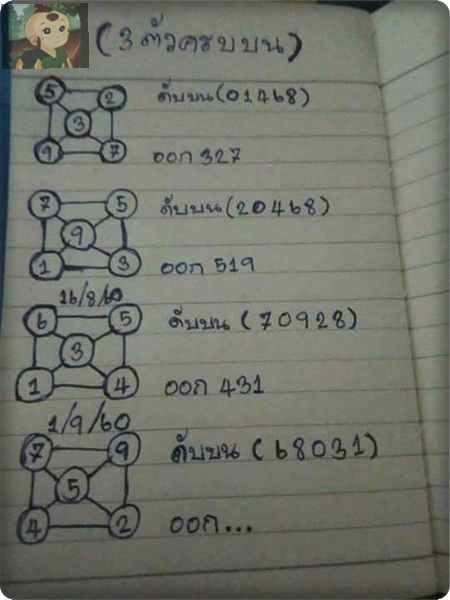 (3 ตัวครบบน)
5 2
ดับบน (01468)
3
9 7
ออก 327
7 5
ดับบน (20468)
9
1 3
ออก 519
16/8/60
6 5
ดับบน (70928)
3
1 4
ออก 431
1/9/60
7 9
ดับบน (68031)
5
4 2
ออก...